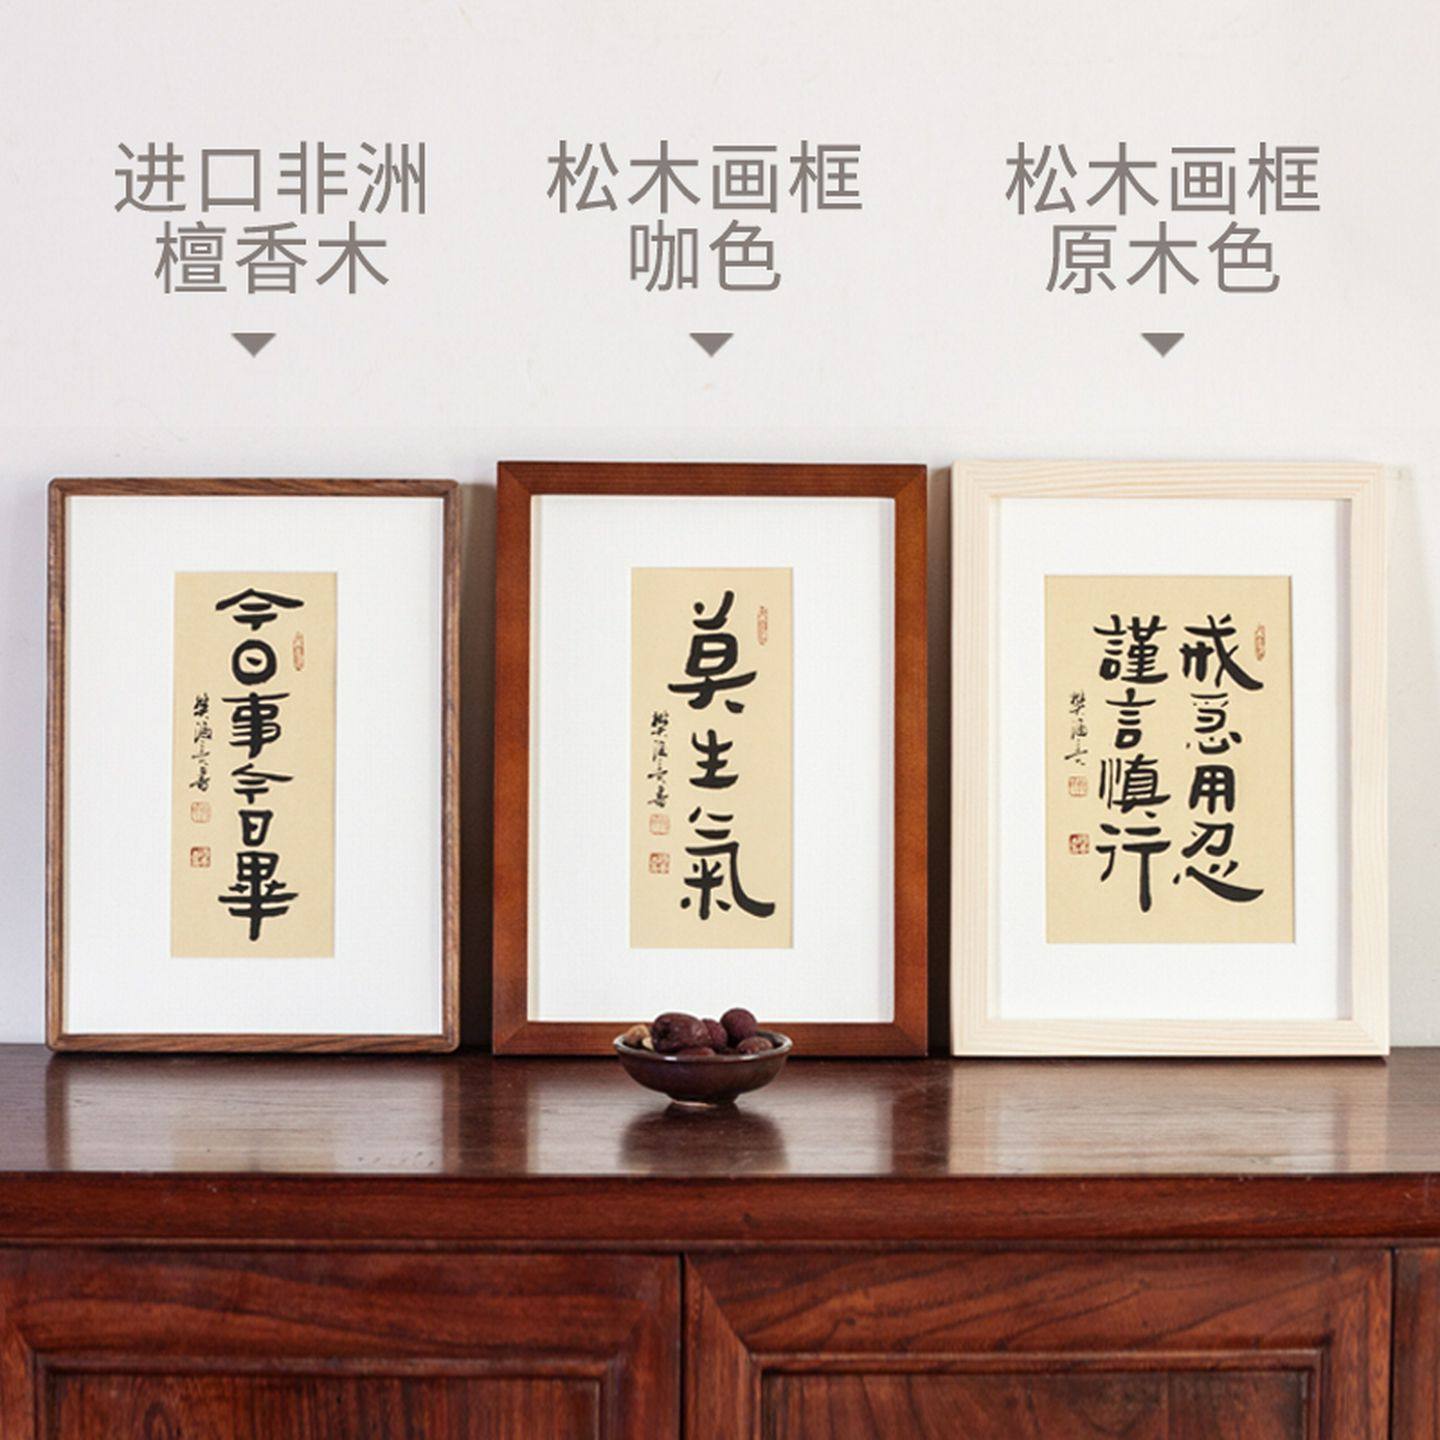 进口非洲
檀香木
松木画框
咖色
松木画框
原木色
今日事今日畢
莫生氣
戒急用忍
謹言慎行